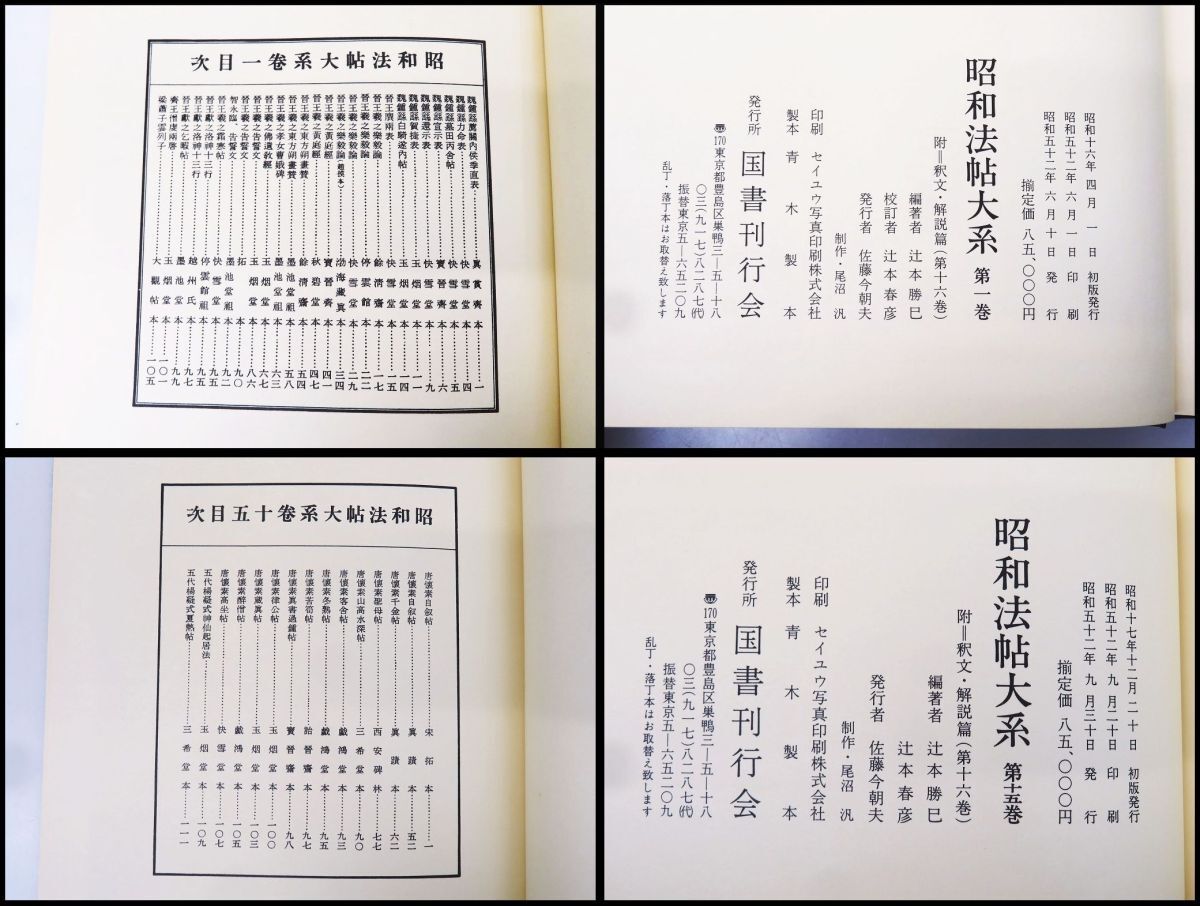 昭和法帖大系卷一目次
魏鍾繇薦關內侯季直表……眞賞齋本……一
魏鍾繇力命表……快雪堂本……四
魏鍾繇墓田丙舍帖……快雪堂本……五
魏鍾繇宣示表……寶晉齋本……六
魏鍾繇還示表……快雪堂本……九
魏鍾繇賀捷表……玉烟堂本
魏鍾繇白騎遂內帖……玉烟堂本……一四
晉王廙兩表……快雪堂本……一五
晉王羲之樂毅論……餘淸齋本……一七
晉王羲之樂毅論……停雲館本……二二
晉王羲之樂毅論……快雪堂本……二九
晉王羲之樂毅論(越摸本)……渤海藏眞本……三四
晉王羲之黃庭經……寶晉齋本……四一
晉王羲之黃庭經……秋碧堂本……四七
晉王羲之東方朔畫贊……餘淸齋本……五四
晉王羲之東方朔畫贊……墨池堂祖本……五八
晉王羲之孝女曹娥碑……墨池堂祖本……六三
晉王羲之佛遺敎經……玉烟堂本……六七
晉王羲之告誓文……玉烟堂本……八六
智永臨、告誓文……拓本……九〇
晉王羲之霜寒帖……墨池堂祖本……九二
晉王獻之洛神十三行……快雪堂本……九五
晉王獻之洛神十三行……停雲館祖本……九五
晉王獻之乞暇帖……越州氏本……九七
墨池堂本……九九
齊王僧虔兩啓……玉烟堂本……一〇一
梁蕭子雲列子……大觀帖本……一〇五
昭和十六年 四月 一 日 初版発行
昭和五十二年 六月 一 日 印 刷
昭和五十二年 六月 十 日 発 行
揃定価 八五、〇〇〇円
昭和法帖大系 第一巻
附=釈文・解説篇(第十六巻)
編著者 辻本勝巳
校訂者 辻本春彦
発行者 佐藤今朝夫
制作・尾沼 汎
印刷 セイユウ写真印刷株式会社
製本 青木製本
発行所 国書刊行会
〠170東京都豊島区巣鴨三—五—十八
〇三(九一七)八二八七(代)
振替東京五—六五二〇九
乱丁・落丁本はお取替え致します
昭和法帖大系卷十五目次
唐懷素自叙帖……宋拓本……一
唐懷素自叙帖……眞蹟本……五二
唐懷素千金帖……眞蹟本……六二
唐懷素聖母帖……西安碑林……八二
唐懷素山高水深帖……三希堂本……九〇
唐懷素客舍帖……戲鴻堂本……九三
唐懷素冬熟帖……戲鴻堂本……九五
唐懷素苦筍帖……詒晉齋本……九七
唐懷素眞書過鍾帖……寶晉齋本……九八
唐懷素律公帖……玉烟堂本……一〇〇
唐懷素藏眞帖……玉烟堂本……一〇三
唐懷素醉僧帖……戲鴻堂本……一〇五
唐懷素高坐帖……快雪堂本……一〇七
五代楊凝式神仙起居法……玉烟堂本……一〇九
五代楊凝式夏熱帖……三希堂本……一一一
昭和十七年十二月 二十 日 初版発行
昭和五十二年 九月二十日 印 刷
昭和五十二年 九月三十日 発 行
揃定価 八五、〇〇〇円
昭和法帖大系 第十五巻
附=釈文・解説篇(第十六巻)
編著者 辻本勝巳
辻本春彦
発行者 佐藤今朝夫
制作・尾沼 汎
印刷 セイユウ写真印刷株式会社
製本 青木製本
発行所 国書刊行会
〠170東京都豊島区巣鴨三—五—十八
〇三(九一七)八二八七(代)
振替東京五—六五二〇九
乱丁・落丁本はお取替え致します